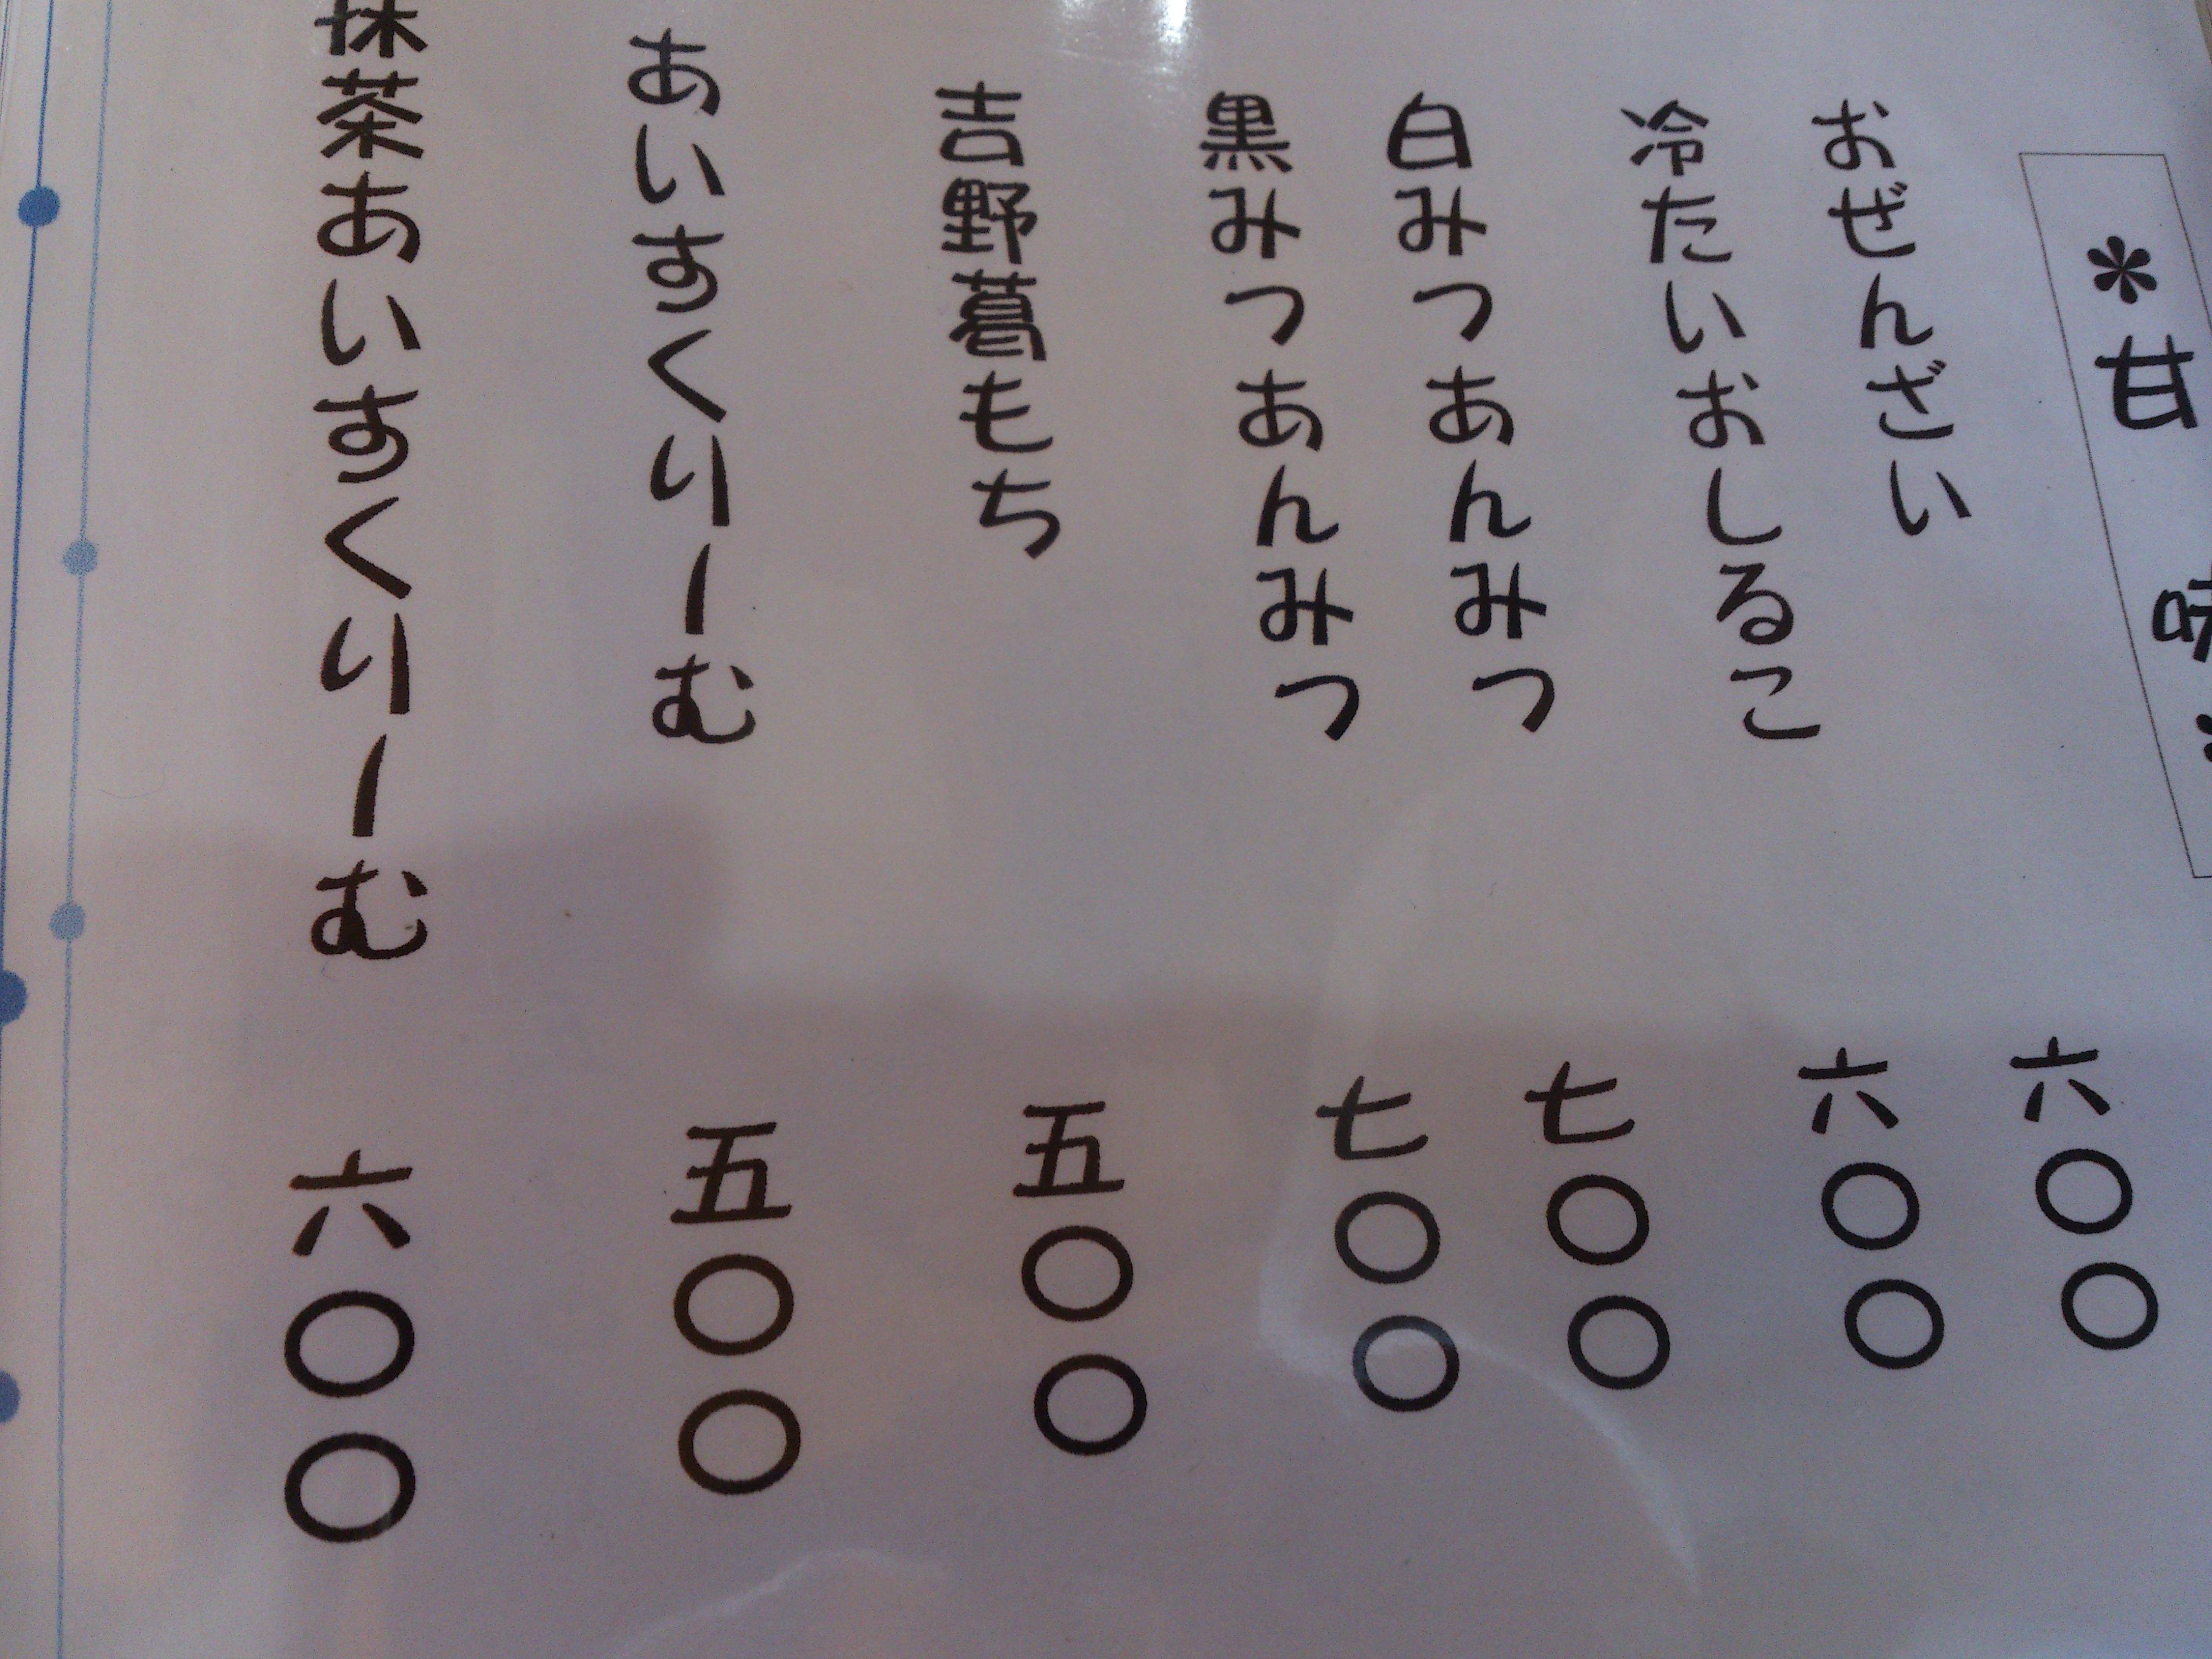 *甘味*
おぜんざい 六〇〇
冷たいおしるこ 六〇〇
白みつあんみつ 七〇〇
黒みつあんみつ 七〇〇
吉野葛もち 五〇〇
あいすくりーむ 五〇〇
抹茶あいすくりーむ 六〇〇